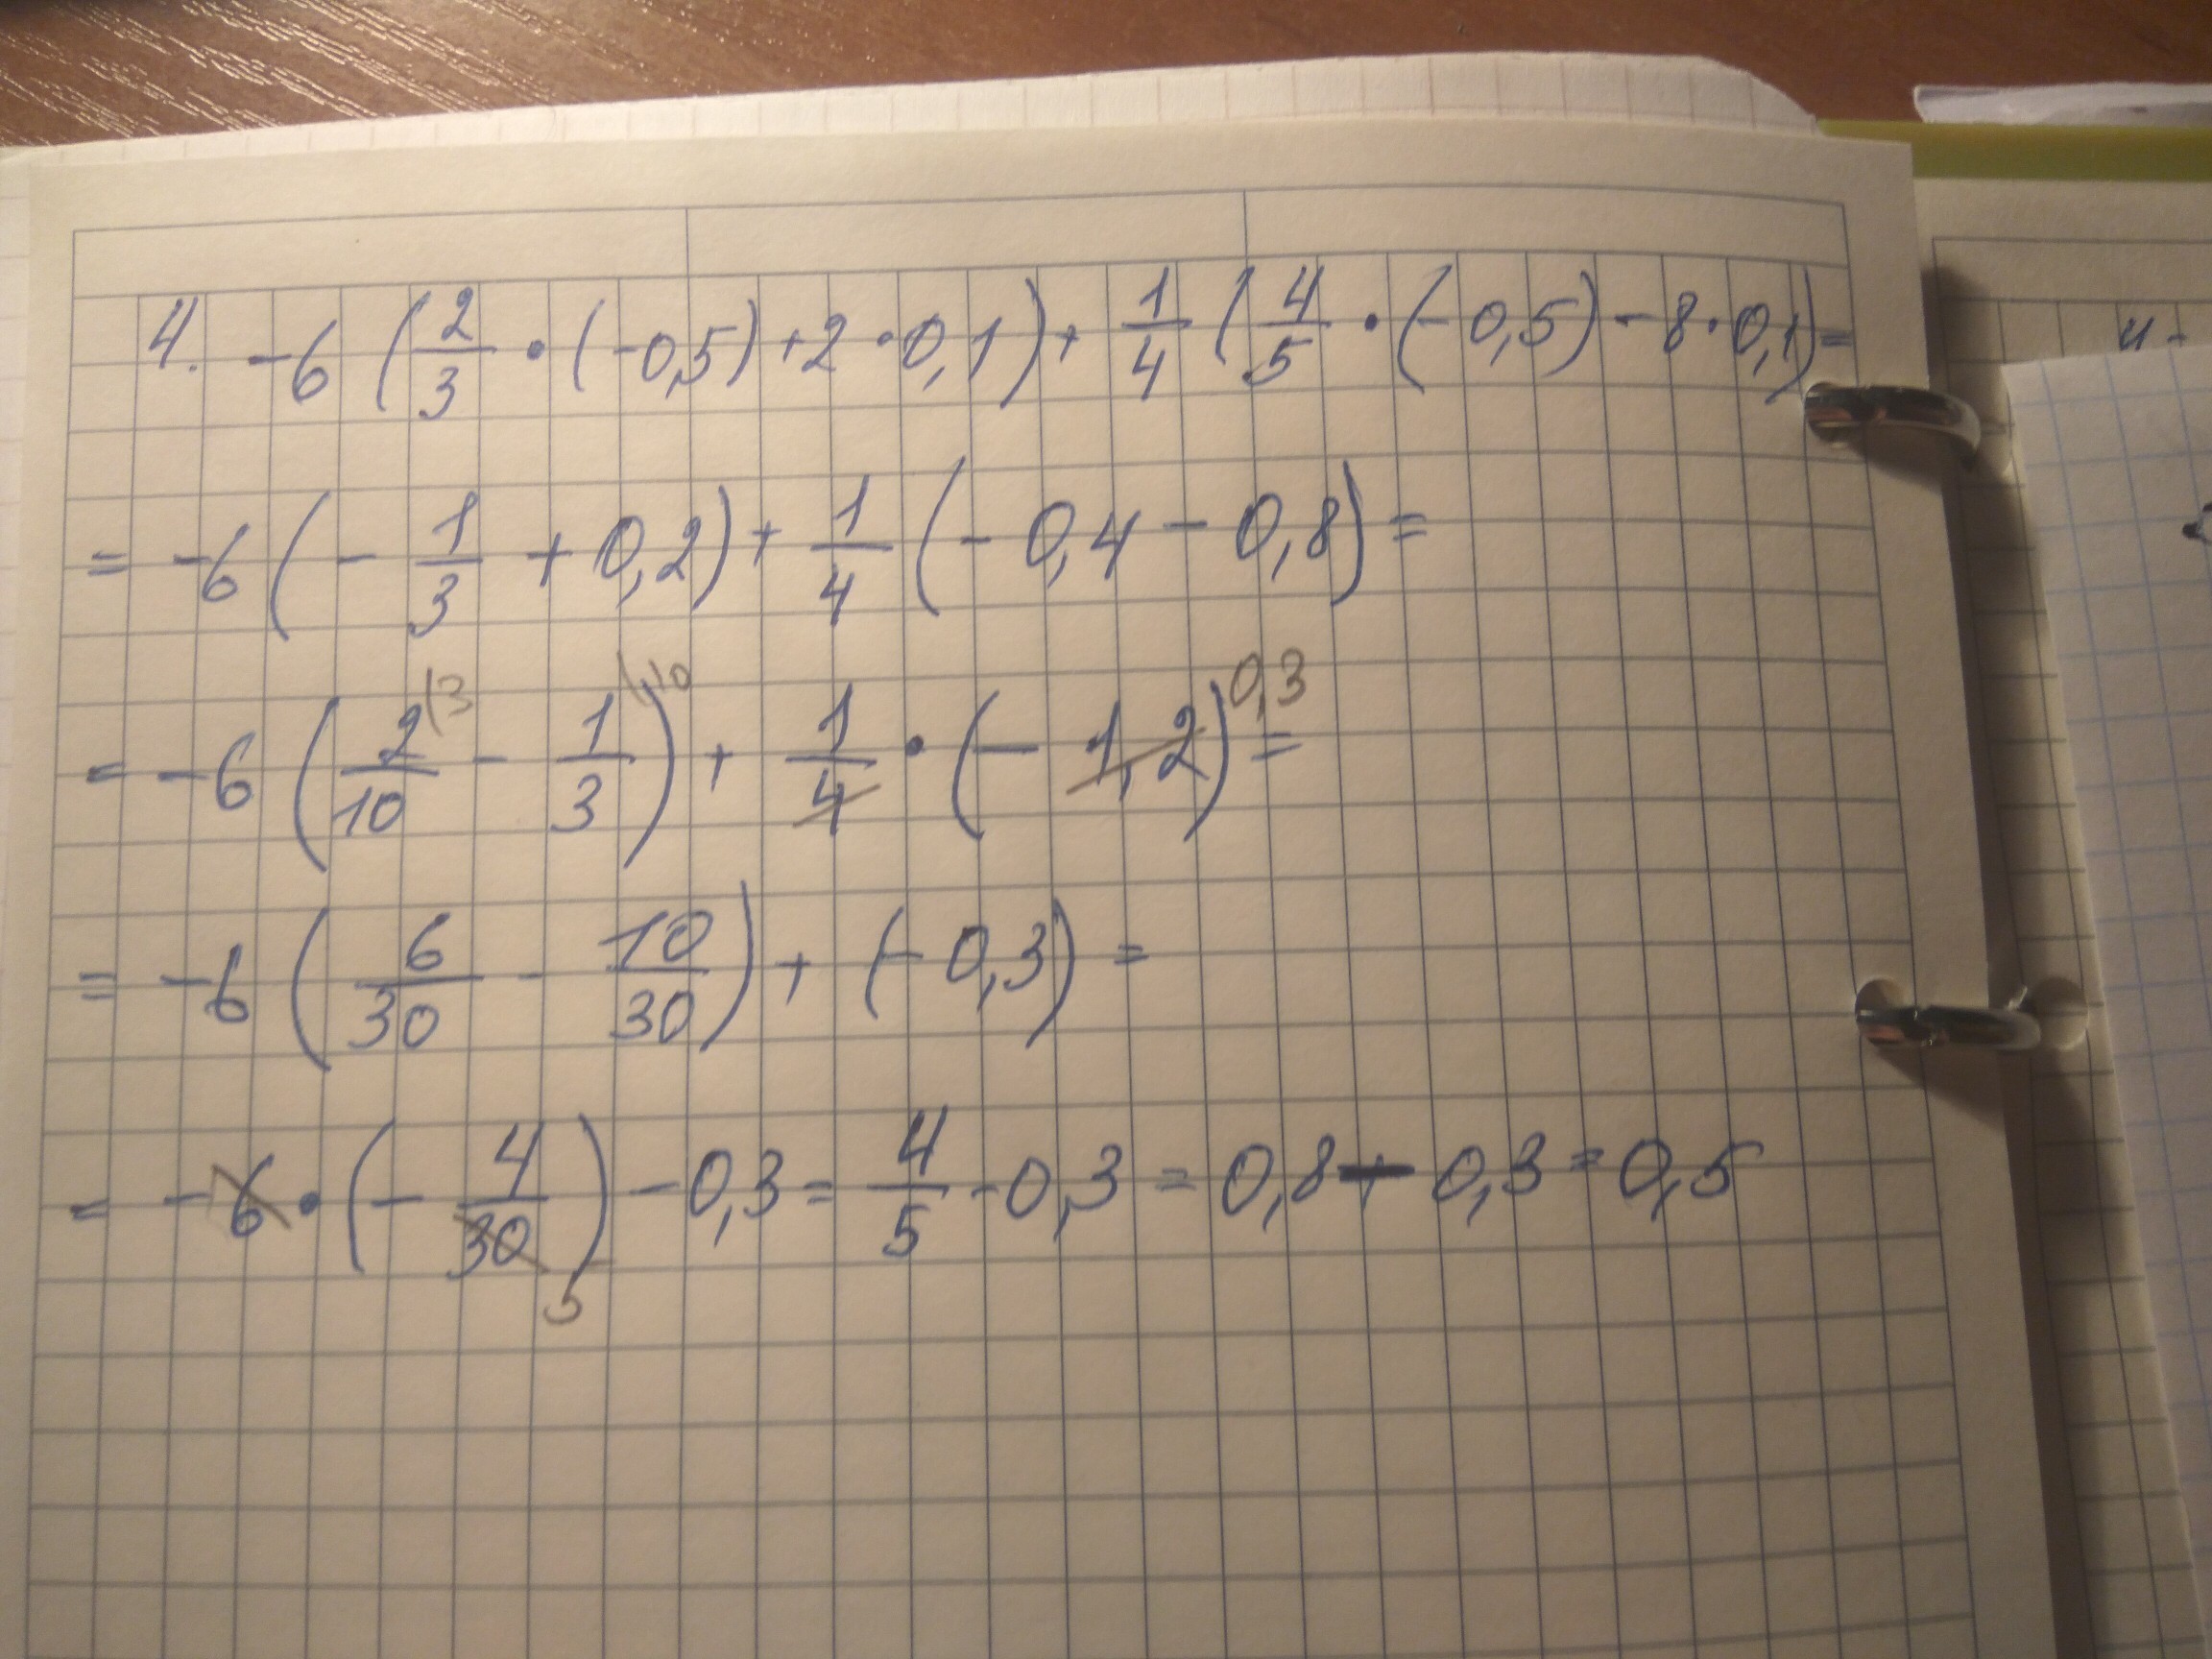 4. -6 (2/3 • (-0,5) + 2 • 0,1) + 1/4 (4/5 • (-0,5) - 8 • 0,1) =
= -6 (- 1/3 + 0,2) + 1/4 (- 0,4 - 0,8) =
= -6 (2/10 (3 - 1/3 (10) + 1/4 • (- 1,2) 0,3 =
= -6 (6/30 - 10/30) + (- 0,3) =
= -6 • (- 4/30 5) - 0,3 = 4/5 - 0,3 = 0,8 - 0,3 = 0,5